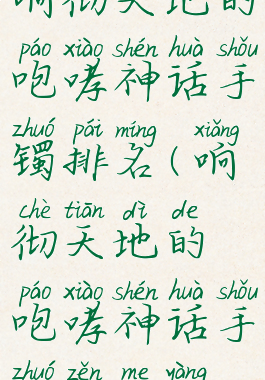 响彻天地的
páo xiào shén huà shǒu
咆哮神话手
zhuó pái míng xiǎng
镯排名(响
chè tiān dì de
彻天地的
páo xiào shén huà shǒu
咆哮神话手
zhuó zěn me yàng